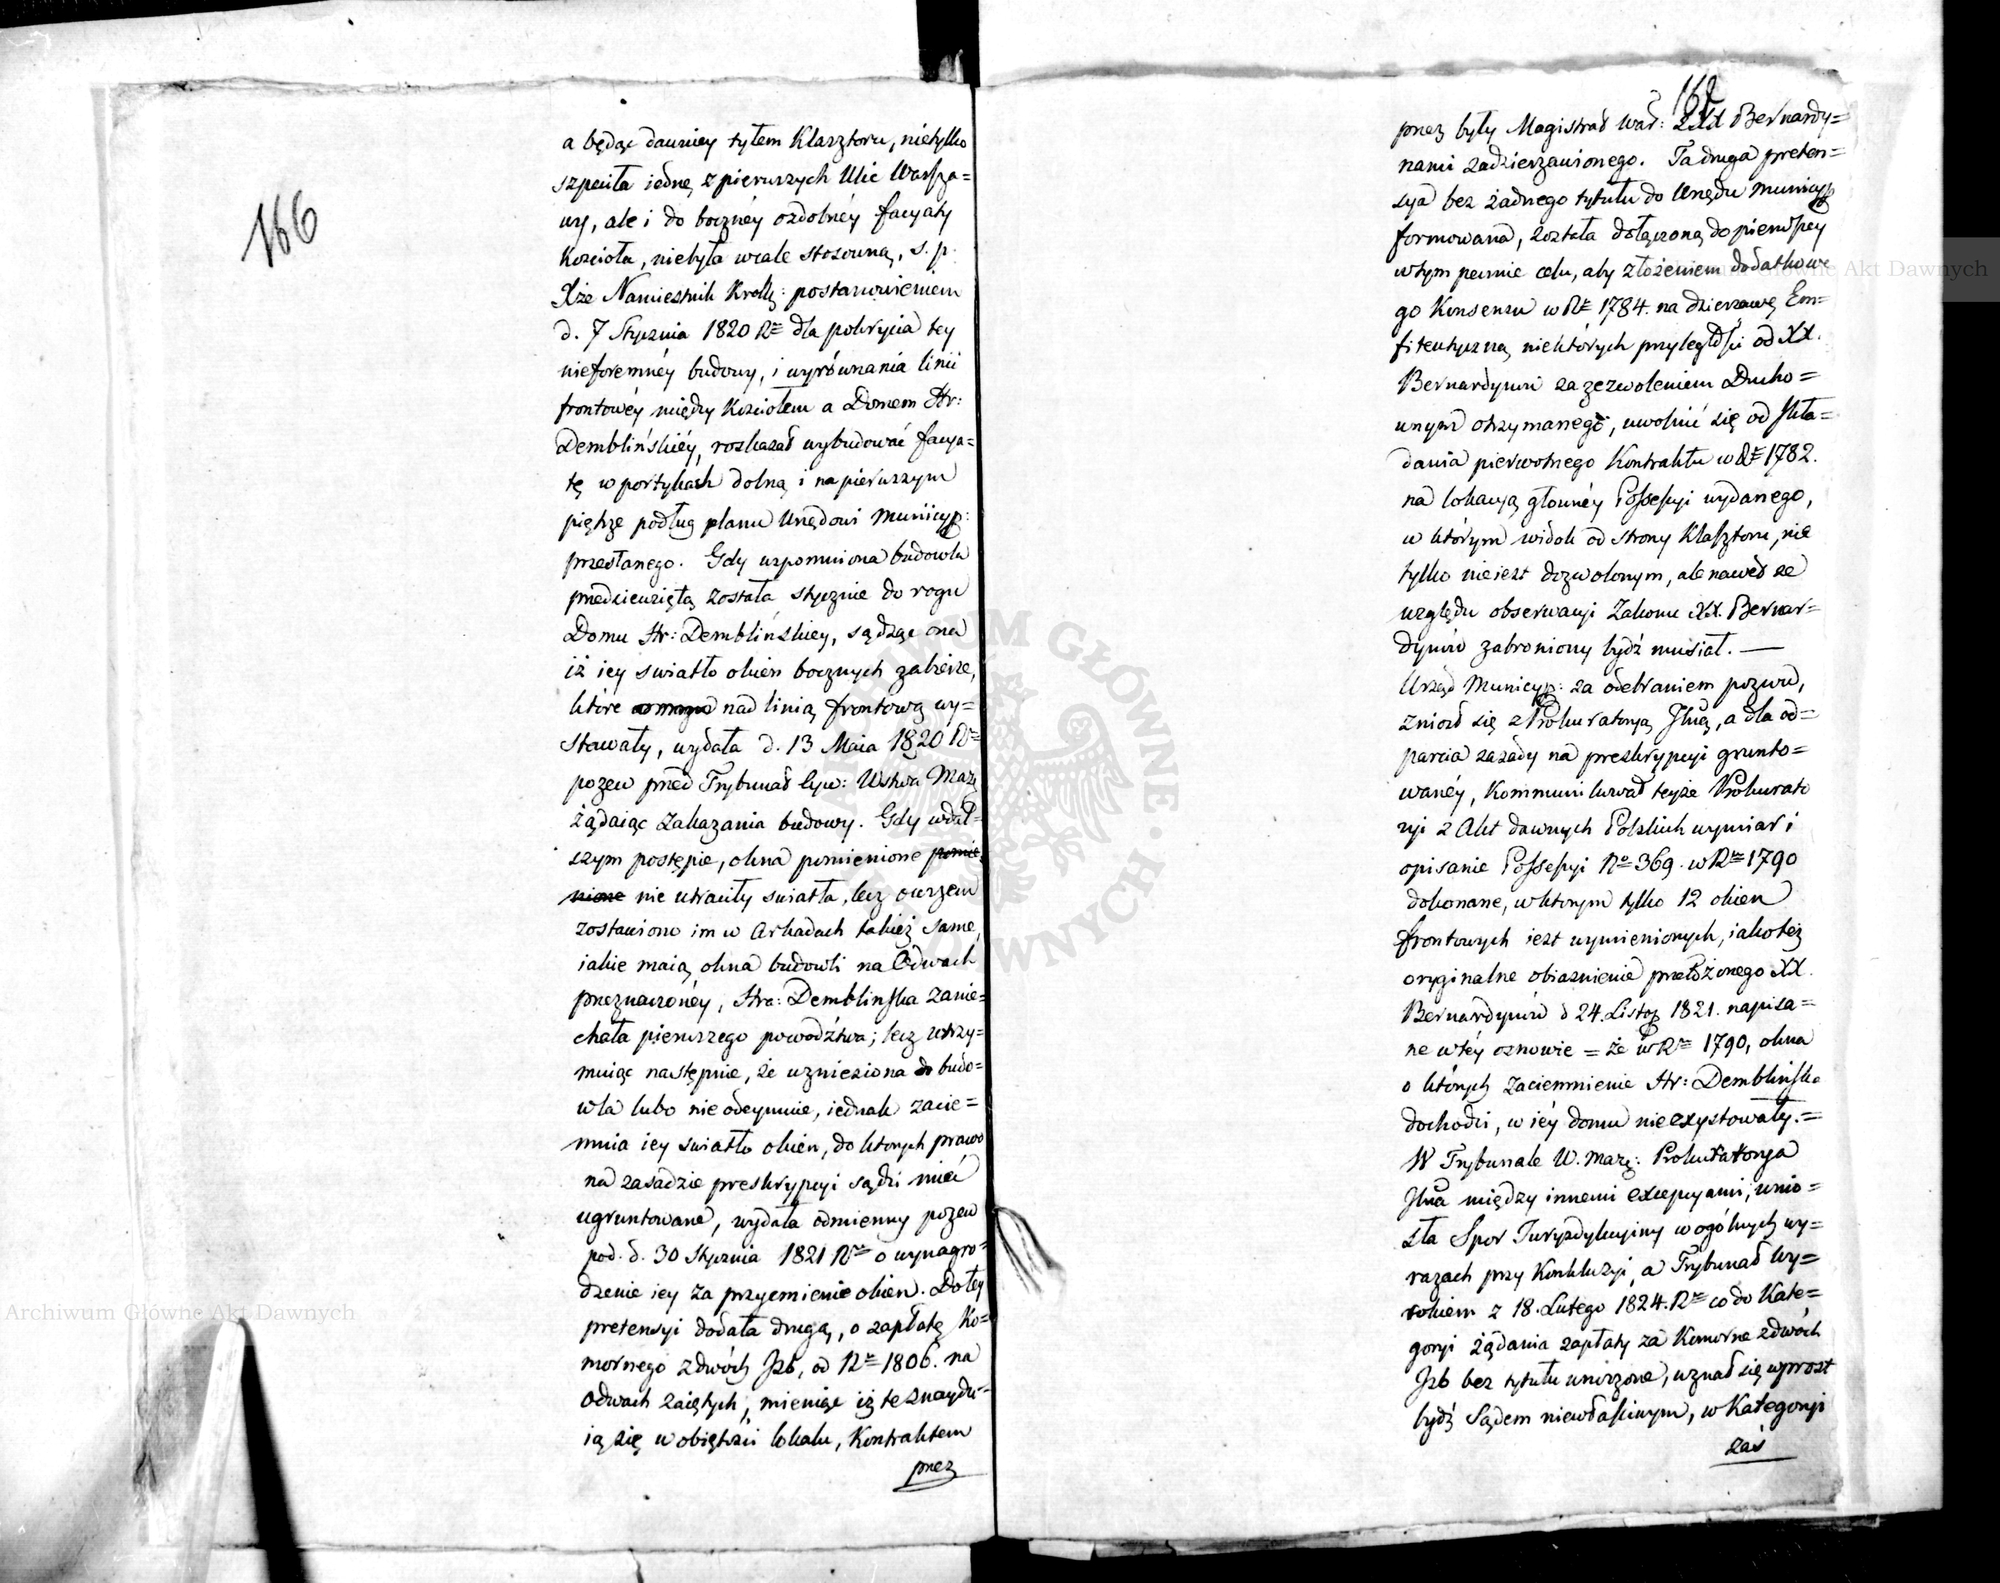 166
a będąc dawniey tyłem Klasztoru, nietylko
szpeciła iednę z pierwszych Ulic Warsza=
wy, ale i do boczney ozdobney facyaty
Kościoła, niebyła wcale stosowną, s. p.
Xże Namiestnik Krolk: postanowieniem
d. 7 Stycznia 1820 R. dla pokrycia tey
nieforemney budowy, i wyrównania linii
frontowey między Kościołem a Domem Hr:
Demblińskiey, rozkazał wybudować facya=
tę w portykach dolną i na pierwszym
piętrze podług planu Urzędowi Municyp:
przesłanego. Gdy wspomniona budowla
przedsięwziętą została stycznie do rogu
Domu Hr: Demblińskiey, sądząc ona
iż iey swiatło okien bocznych zabierze,
które nad linią frontową wy=
stawały, wydała d. 13 Maia 1820 R.
pozew przed Trybunał Cyw: Wództwa Maz:
żądaiąc zakazania budowy. Gdy wdal=
szym postępie, okna pomienione pomie=
nione nie utraciły swiatła, lecz owszem
zostawiono im w Arkadach takież same,
iakie maią okna budowli na Odwach
przeznaczoney, Hra: Demblińska zanie=
chała pierwszego powodźtwa; lecz utrzy=
muiąc następnie, że wzniesiona budo=
wla lubo nie odeymuie, iednak zacie=
mnia iey swiatło okien, do ktorych prawo
na zasadzie preskrypcyi sądzi mieć
ugruntowane, wydała odmienny pozew
pod. d. 30 Stycznia 1821 R. o wynagro=
dzenie iey za przyciemienie okien. Do tey
pretensyi dodała drugą, o zapłatę Ko=
mornego zdwóch Izb, od R. 1806. na
Odwach zaiętych, mieniąc iż te znaydu=
ią się w obiętości lokalu, Kontraktem
przez
przez były Magistrat War: z XX Bernardy=
nami zadzierzawionego. Ta druga preten=
sya bez żadnego tytułu do Urzędu Municyp
formowana, została dołączoną do pierwszey
wtym pewnie celu, aby złożeniem dodatkowe
go Konsensu w R. 1784. na dzierzawę Em=
fiteutyczną niektórych przyległości od XX.
Bernardynów za zezwoleniem Ducho=
wnym otrzymanego, uwolnić się od skła=
dania pierwotnego Kontraktu w R. 1782.
na lokacyą główney Possessyi wydanego,
w którym widok od strony Klasztoru, nie
tylko nieiest dozwolonym, ale nawet ze
względu obserwancyi Zakonu XX. Bernar=
dynów zabroniony bydź musiał. —
Urząd Municyp: za odebraniem pozwu,
zniosł się z Prokuratoryą Jlną, a dla od=
parcia zasady na preskrypcyi grunto=
waney, Kommunikował teyże Prokurato
ryi z Akt dawnych Polskich wymiar i
opisanie Possessyi No 369. w R. 1790
dokonane, w ktorym tylko 12 okien
frontowych iest wymienionych, iakoteż
oryginalne obiasnienie przełożonego XX.
Bernardynów d 24. Listop 1821. napisa=
ne w tey osnowie = że w R. 1790, okna
o których zaciemnienie Hr: Demblińska
dochodzi, w iey domu nie exystowały. =
W Trybunale W. Maz: Prokuratorya
Jlna między innemi excepcyami, wnio=
sła Spor Juryzdykcyiny w ogólnych wy=
razach przy Konkluzyi, a Trybunał wy=
rokiem z 18. Lutego 1824. R. co do Kate=
goryi żądania zapłaty za Komorne z dwóch
Izb bez tytułu wniesione, uznał się wprost
bydź Sądem niewłaściwym, w Kategoryi
zaś
Archiwum Główne Akt Dawnych
Archiwum Główne Akt Dawnych
ARCHIWUM GŁÓWNE AKT DAWNYCH